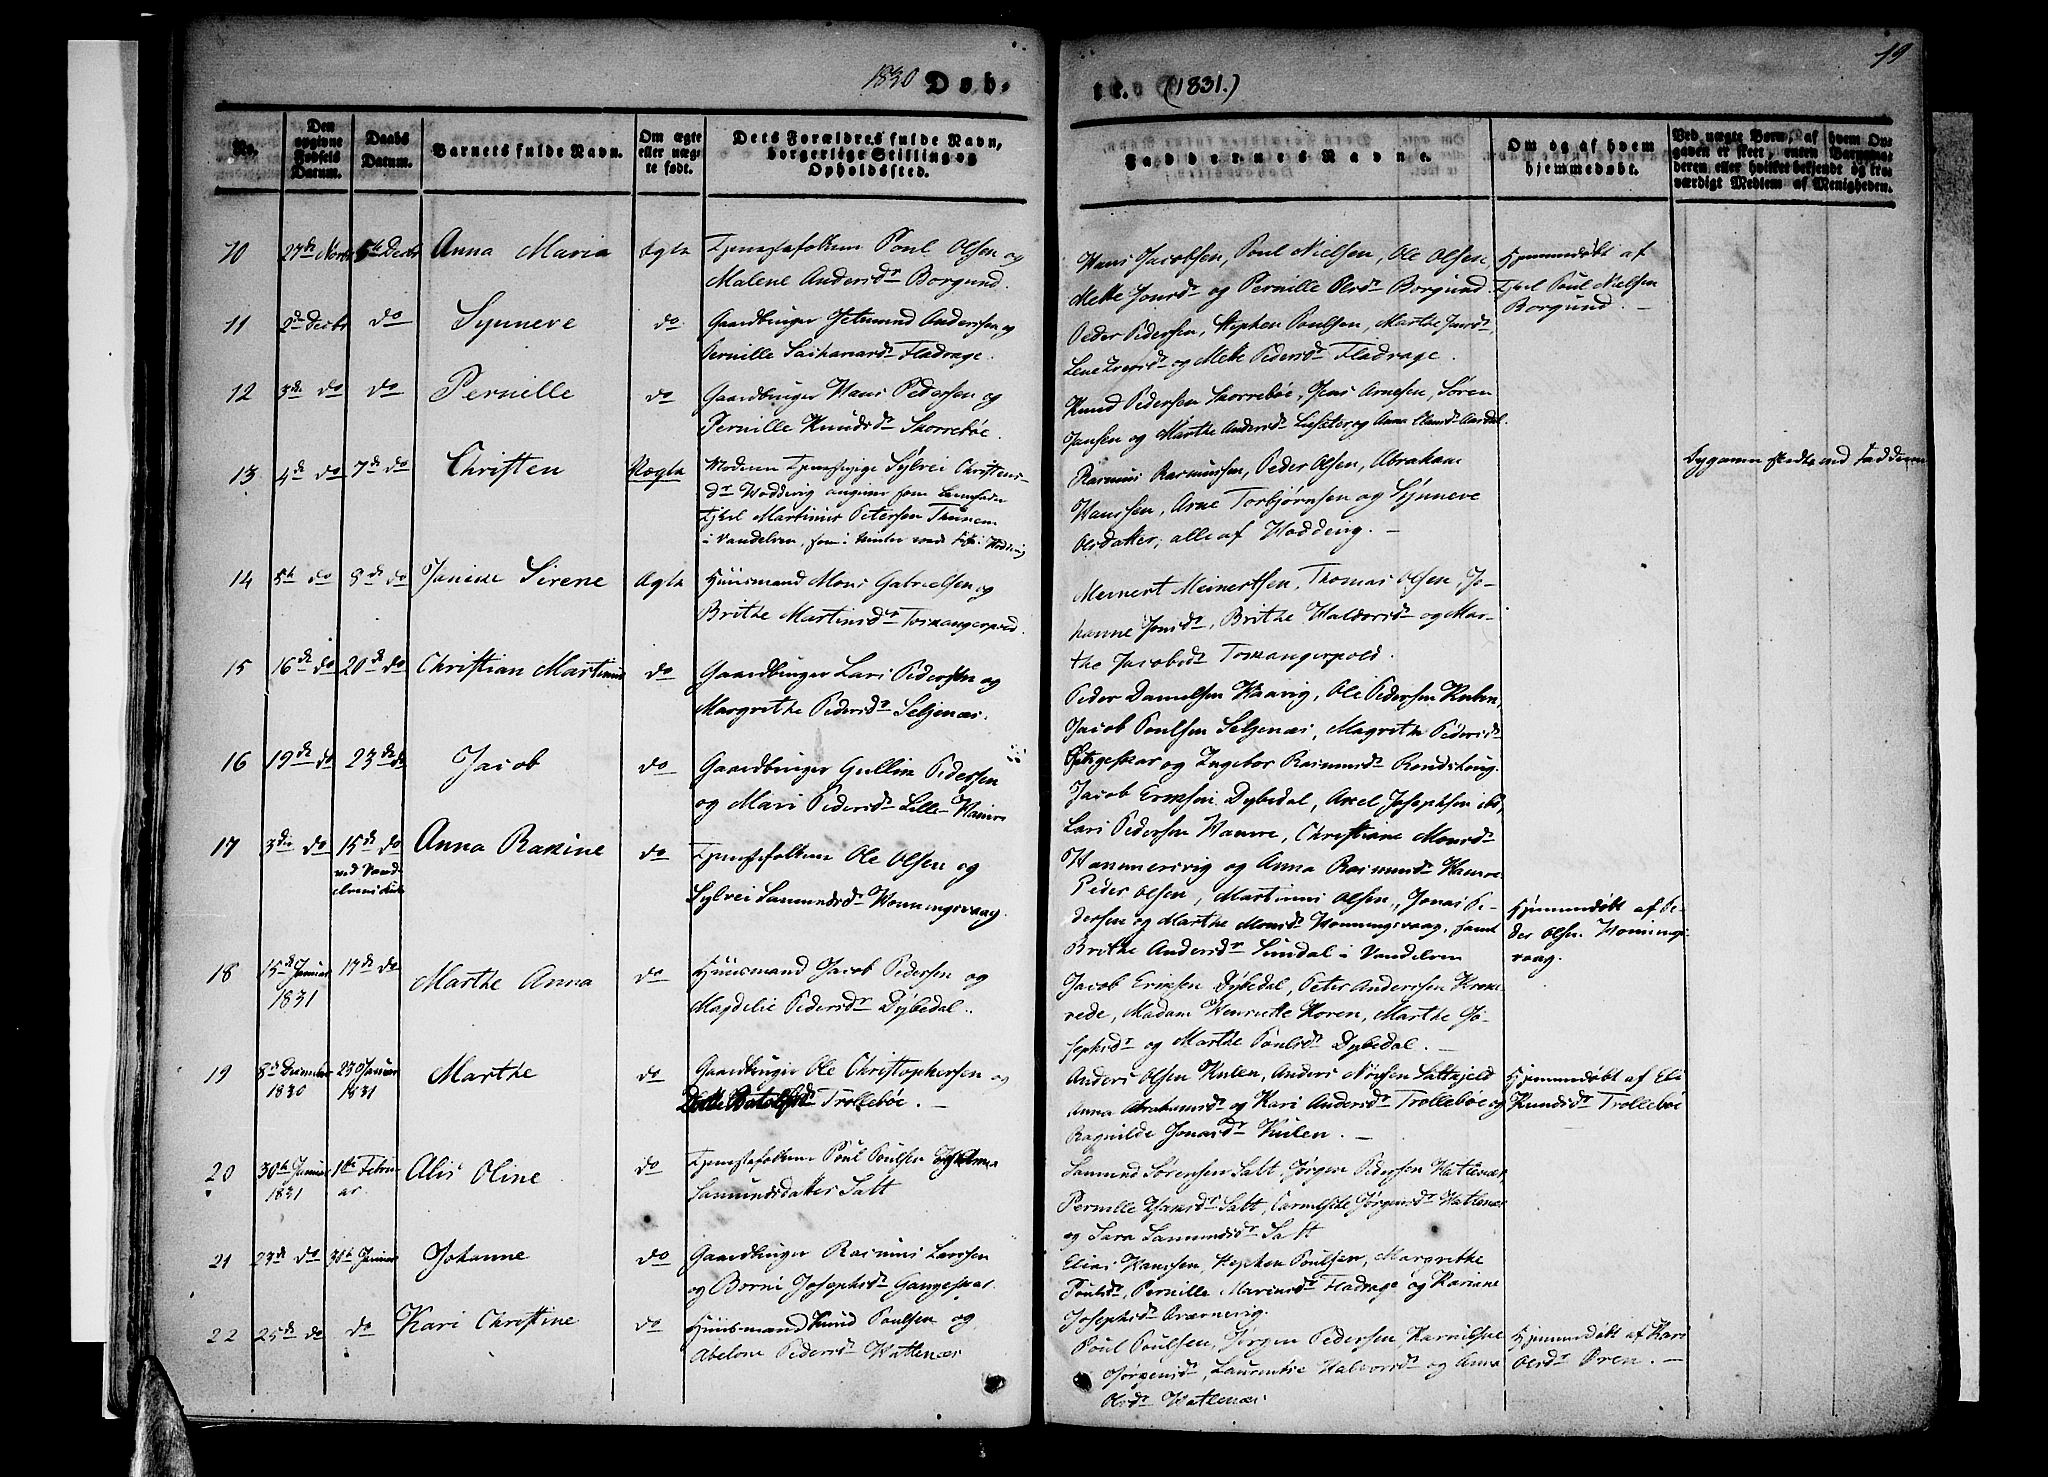 1830 Døb-
te. (1831.)
19
No.
Den opgivne Fødsels Datum.
Daabs Datum.
Barnets fulde Navn.
Om ægte eller uægte født.
Dets Forældres fulde Navn, borgerlige Stilling og Opholdssted.
Faddernes Navne.
Om og af hvem hjemmedøbt.
Ved uægte Børn, af hvem Opgaven er skeet, enten Barnemoderen eller hvilket bekjendt og troværdigt Medlem af Menigheden.
10 27de Novbr 5te Decbr Anna Maria Ægte
Tjenestefolkene Poul Olsen og
Malene Andersdr Borgund.
Hans Jacobsen, Poul Nielsen, Ole Olsen,
Mette Jonsdr og Pernille Olsdr Borgund.
Hjemmedøbt af
Poul Nielsen
Borgund. —
11 2de Decbr do Synneve do
Gaardbruger Jetmund Andersen og
Pernille Sachariasdr Fladrage.
Peder Pedersen, Stephen Poulsen, Marthe Jonsdr
Lene Iversdr og Mette Pedersdr Fladrage.
12 3de do do Pernille do
Gaardbruger Hans Pedersen og
Pernille Knudsdr Skorrebøe.
Knud Pedersen Skorrebøe, Jens Arnesen, Søren
Jansen og Marthe Andersdr og Anna
13 4de do 7de do Christen Uægte
Moderen Sylvei Christens-
dr Hoddevig angiver som Barnefader
Martinus Petersen
i Vandelven, som i Vinter
Rasmus Rasmussen, Peder Olsen, Abraham
Hanssen, Arne Torbjørnsen og Synneve
Olsdatter, alle af Hoddevig. —
Opgaven skedte ved Fadderne
14 8de do 9de do Janikke Sirene Ægte
Huusmand Mons Gabrielsen og
Brithe Martinsdr Toskangerpold.
Meinert Meinertsen, Thomas Olsen, Jo-
hanne Jonsdr, Brithe Haldorsdr og Mar-
the Jacobsdr Toskangerpold.
15 16de do 20de do Christian Martinus do
Gaardbruger Lars Pedersen og
Margrethe Pedersdr Seljenæs.
Peder Danielsen Haavig, Ole Pedersen Kulen,
Jacob Poulsen Seljenæs, Magrethe Pedersdr
og Ingebor Rasmusdr
16 19de do 23de do Jacob do
Gaardbruger Gullik Pedersen
og Mari Pedersdr Lille-Hamre
Jacob Eriksen Dybedal, Axel Josephsen ibd,
Lars Pedersen Hamre, Christiane Monsdr
Hammersvig og Anna Rasmusdr Hamre
17 3die do 15de do Anna Rakine do
ved Vand-
elvens Kirke
Tjenestefolkene Ole Olsen og
Sylvei Samundsdr Honningsvaag.
Peder Olsen, Martinus Olsen, Jonas Pe-
dersen og Marthe Monsdr Honningsvaag, samt
Brithe Andersdr Sundal i Vandelven
Hjemmedøbt af Pe-
der Olsen Honings-
vaag.
18 15de Januar 17de do Marthe Anna do
1831
Huusmand Jacob Pedersen og
Magdelie Pedersdr Dybedal.
Jacob Eriksen Dybedal, Peter Anderssen Krone-
rede, Madam Henriette Koren, Marthe Jo-
sephsdr og Marthe Poulsdr Dybedal. —
19 8de December 23 Januar Marthe do
1830 1831
Gaardbruger Ole Christophersen og
Trollebøe. —
Anders Olsen Kulen, Anders
Anna Abrahamsdr og Kari Andersdr Trollebøe og
Ragnilde Jonasdr Kulen. —
Hjemmedøbt af Eli
Knudsdr Trollebøe
20 30te Januar 1te Febru- Alis Oline do
1831 ar
Tjenestefolkene Poul Poulsen
Samundsdatter Salt
Samund Sørensen Salt, Jørgen Pedersen Hatlenæs,
Pernille Salt, Jørgensdr Hatlenæs
og Sara Samundsdr Salt
21 23de do 30te Januar Johanne do
Gaardbruger Rasmus Larssen
og Berni Josephsdr Gangeskar
Elias Hanssen, Stephen Poulsen, Margrethe
Poulsdr, Pernille Mariusdr Fladrage og Kariane
Josephsdr
22 25de do do Kari Christine do
Huusmand Knud Poulsen og
Abelone Pedersdr Hatlenæs
Poul Poulsen, Jørgen Pedersen, Karnilsine
Jørgensdr, Laurentse Halvorsdr og Anna
Olsdr Hatlenæs
Hjemmedøbt af Kari
Olsdr Øren. —